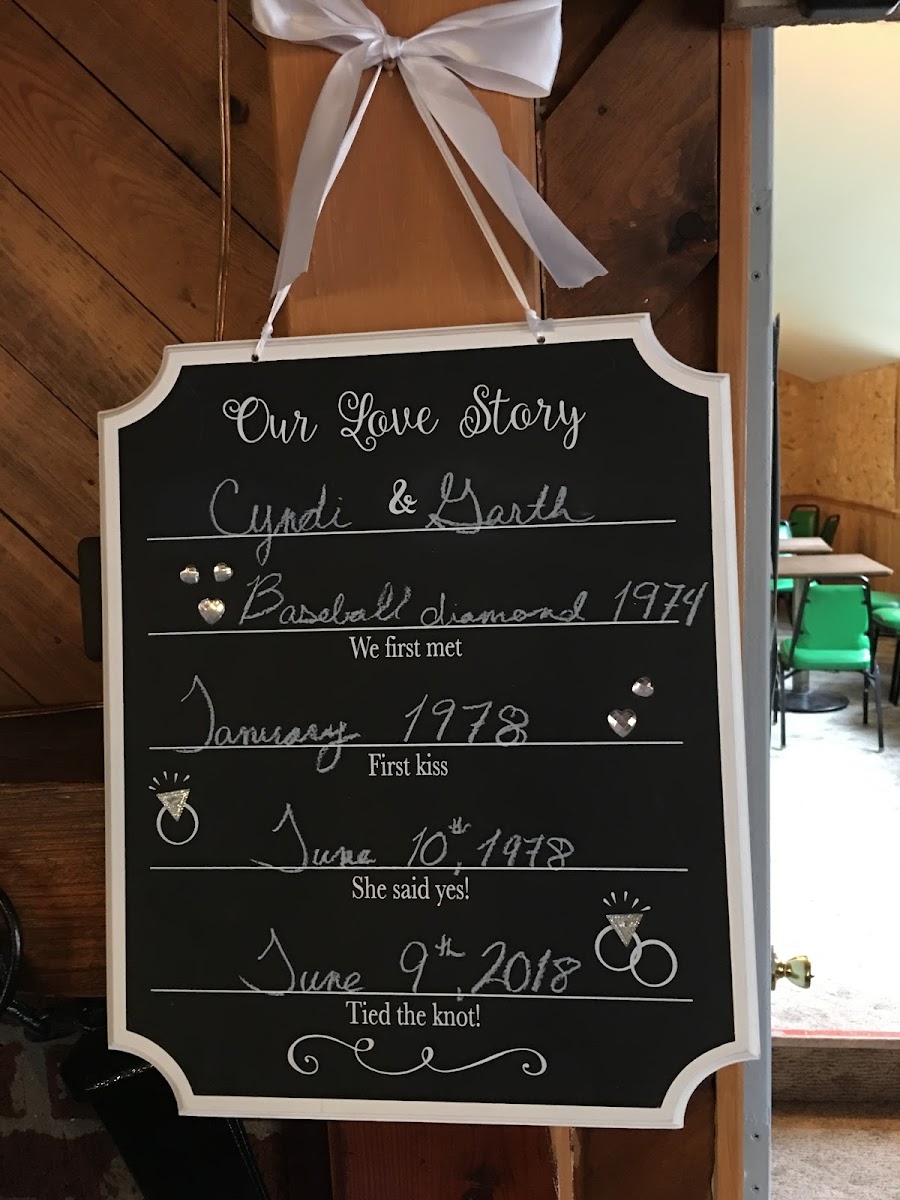 Our Love Story
Cyndi & Garth
Baseball diamond 1974
We first met
January 1978
First kiss
June 10th, 1978
She said yes!
June 9th, 2018
Tied the knot!